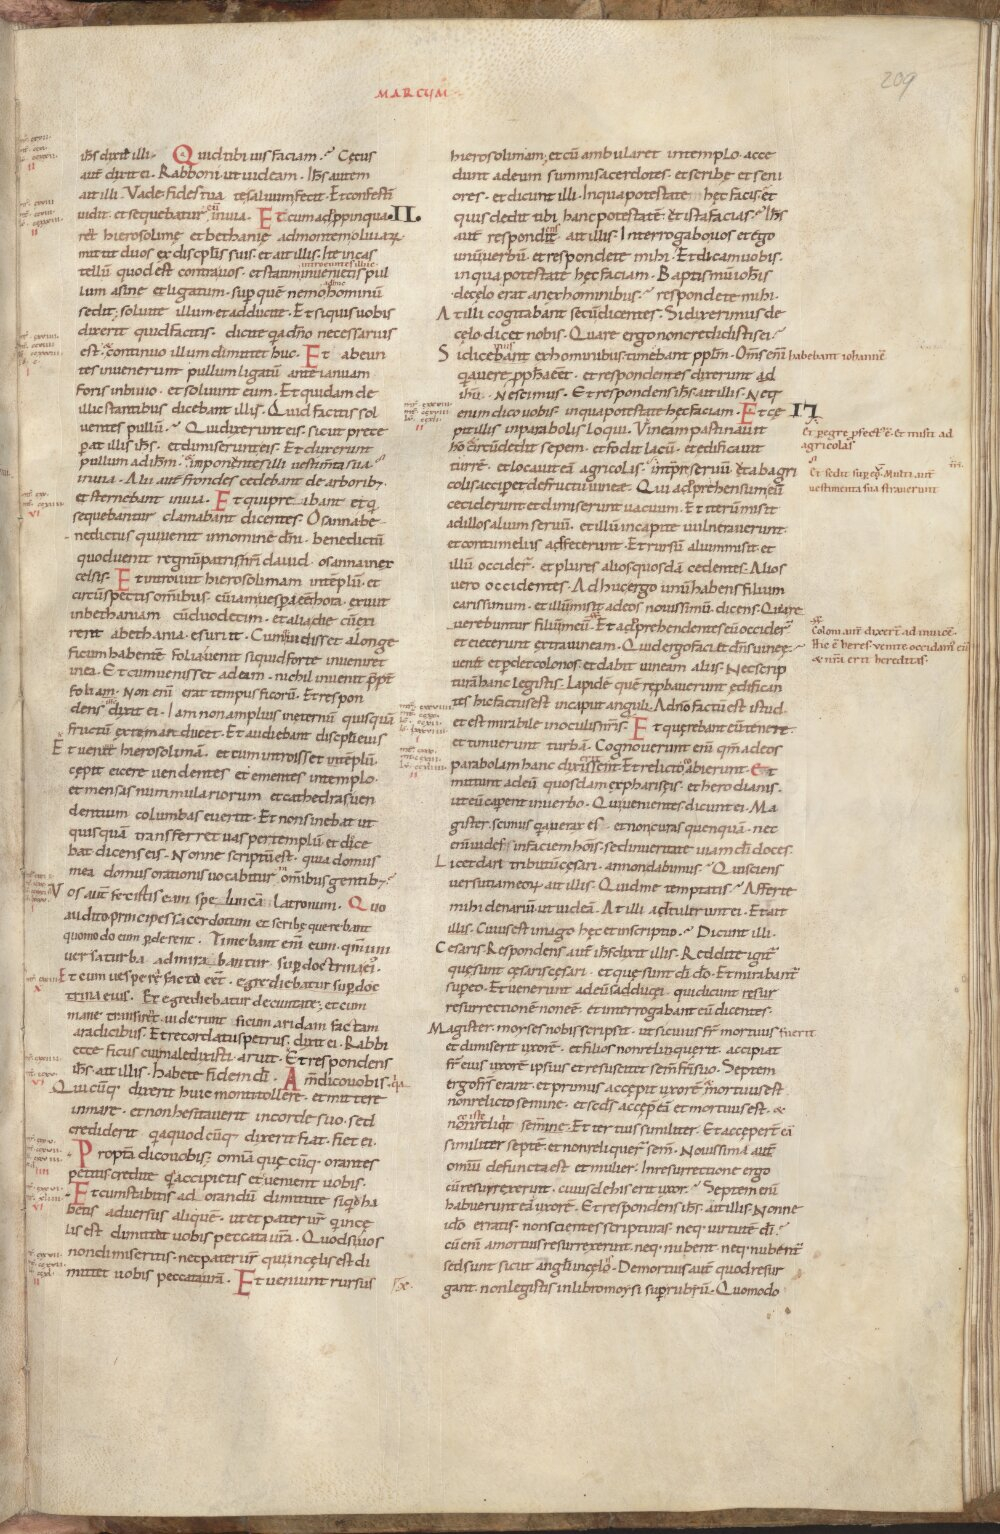 MARCUM
209
ihs dixit illi. Quid tibi uis faciam. Cęcus
aut dixit ei. Rabboni ut uideam. Ihs autem
ait illi. Vade fides tua te saluum fecit. Et confestī
uidit. et sequebatur eū in uia. Et cum adppinqua
rēt hierosolimę et bethanię ad montem oliuarꝝ
mittit duos ex discplis suis. et ait illis. Ite in cas
tellū quod est contra uos. et statim introeuntes illuc inuenietis pul
lum asinę ligatum. sup quē nemo adhuc hominū
sedit; soluite illum et adducite. Et si quis uobis
dixerit quid facitis. dicite qa dn̄o necessarius
est. & continuo illum dimittet huc. Et abeun
tes inuenerunt pullum ligatū ante ianuam
foris in biuio. et soluunt eum. Et quidam de
illic stantibus dicebant illis. Quid facitis sol
uentes pullū. Qui dixerunt eis. sicut prece
pat illis ihs. et dimiserunt eis. Et duxerunt
pullum ad ihm. & imponentes illi uestimta sua.
in uia. Alii aut frondes cedebant de arboribꝫ
et sternebant in uia. Et qui pre ibant et q
sequebantur clamabant dicentes. Osanna be
nedictus qui uenit in nomine dn̄i. benedictū
quod uenit regnū patris nr̄i dauid. osanna in ex
celsis. Et introiuit hierosolimam in teplū. et
circūspectis om̄ibus. cū iam uespa eēt hora. exiuit
in bethaniam cū duodecim. et alia die cū exi
rent a bethania. esuriit. Cum uidisset a longe
ficum habentē folia. uenit si quid forte inueniret
in ea. Et cum uenisset ad eam. nichil inuenit prēt
folia. Non enī erat tempus ficorū. Et respon
dens dixit ei. Iam non amplius in eternū quisquā
fructū ex te manducet. Et audiebant discpli eius
Et uenēt hierosolimā. et cum introisset in teplū.
cępit eicere uendentes et ementes in templo.
et mensas nummulariorum et cathedras uen
dentium columbas euertit. Et non sinebat ut
quisquā transferret uas per templū. et doce
bat dicens eis. Nonne scriptū est. quia domus
mea domus orationis uocabitur om̄ibus gentibꝫ
Vos aut fecistis eam speluncā latronum. Quo
audito principes sacerdotum et scribę querebant
quomodo eum pderent. Timebant enī eum. qm̄ uni
uersa turba admirabantur sup doctrina ei
Et cum uespere factū eēt. egrediebatur
Et egrediebatur de ciuitate. et cum
mane transirēt. uiderunt ficum aridam factam
a radicibus. Et recordatus petrus. dixit ei. Rabbi
ecce ficus cui maledixisti. aruit. Et respondens
ihs ait illis. habete fidem dī. Am̄ dico uobis. qa
Quicūq dixerit huic monti tollere. et mittere
in mare. et non hesitauerit in corde suo. sed
crediderit qa quodcūq dixerit fiat. fiet ei.
Propta dico uobis; omnia quęcūq orantes
petitis credite qa accipietis et uenient uobis.
Et cum stabitis ad orandū dimittite si qd ha
betis aduersus aliquē. ut et pater ur̄ qui in cę
lis est dimittat uobis peccata ura. Quod si uos
non dimiseritis. nec pater ur̄ qui in cęlis est di
mittet uobis peccata ura. Et ueniunt rursus
hierosolimam. et cū ambularet in templo. acce
dunt ad eum summi sacerdotes. et scribę et seni
ores. et dicunt illi. In qua potestate hęc facis. et
quis dedit tibi hanc potestatē ut ista facias. Ihs
aut respondens ait illis. Interrogabo uos et ego
unū uerbū. et respondete mihi. Et dicam uobis.
in qua potestate hęc faciam. Baptismū iohis
de cęlo erat an ex hominibus. respondete mihi.
At illi cogitabant secū dicentes. Si dixerimus de
cęlo. dicet nobis. Quare ergo non credidistis ei.
Si dicebant ex hominibus. timebant pplm. Om̄s enī habebant iohannē
qa uere ppha eēt. et respondentes dixerunt ad
ihū. Nescimus. Et respondens ihs ait illis. Neq
enim dico uobis. in qua potestate hęc faciam. Et cę
pit illis in parabolis loqui. Vineam pastinauit
hō et circūdedit sepem. et fodit lacū. et edificauit
turrē. et locauit eā agricolis. in tempre seruū. ut ab agri
colis acciperet de fructu uineę. Qui adprehensum eū
ceciderunt et dimiserunt uacuum. Et iterū misit
ad illos alium seruū. et illū in capite uulnerauerunt.
et contumeliis adfecerunt. Et rursū alium misit. et
illū occider. et plures alios quosdā cedentes. Alios
uero occidentes. Adhuc ergo unū habens filium
carissimum. et illū misit ad eos nouissimū. dicens. Quia re
uerebuntur filiū meū. Et adprehendentes eū occider
et eiecerunt extra uineam. Quid ergo faciet dn̄s uineę.
ueniet et pdet colonos. et dabit uineam aliis. Nec scrip
turā hanc legistis. Lapidē quē reprobauerunt edifican
tes hic factus est in caput anguli. A dn̄o factū est istud.
et est mirabile in oculis nr̄is. Et querebant eū tenere.
et timuerunt turbā. Cognouerunt enī qm̄ ad eos
parabolam hanc dixisset. Et relicto eo abierunt. Et
mittunt ad eū quosdam ex pharisęis. et herodianis.
ut eū caperent in uerbo. Qui uenientes dicunt ei. Ma
gister. scimus qa uerax es. et non curas quenquā. nec
enī uides in faciem hōis. sed in ueritate uiam dī doces
Licet dari tributū cęsari. an non dabimus. Qui sciens
uersutiam eorꝝ. ait illis. Quid me temptatis. Afferte
mihi denariū ut uideā. At illi adtulerunt ei. Et ait
illis. Cuius est imago hęc et inscriptio. Dicunt illi.
Cesaris. Respondens aut ihs dixit illis. Reddite igit
quę sunt cęsaris cęsari. et quę sunt dī dō. Et mirabant
sup eo. Et uenerunt ad eū sadducęi. qui dicunt resur
rectionē non eē. et interrogabant eū dicentes.
Magister. moyses nobis scripsit. ut si cuius fr mortuus fuerit
et dimiserit uxorē. et filios non relinquerit. accipiat
fr eius uxorē ipsius et resuscitet sem̄ fri suo. Septem
ergo frs erant. et primus accepit uxorē. & mortuus est
non relicto semine. et scds accep eā et mortuus est. &
nec iste reliqt semine. Et tertius similiter. Et acceperē eā
similiter septē. et non reliquer sem̄. Nouissima aut
omniū defuncta est et mulier. In resurrectione ergo
cū resurrexerint. cuius de his erit uxor. Septem enī
habuerunt eā uxorē. Et respondens ihs. ait illis. Nonne
ido erratis. non scientes scripturas neq uirtutē dī.
cū enī a mortuis resurrexerint. neq nubent. neq nubent
sed sunt sicut angli in cęlo. De mortuis aut quod resur
gant. non legistis in libro moysi sup rubū. Quomodo
Et pegre pfect ē. Et misit ad
agricolas
Et sedit sup eū. Multi aut
uestimenta sua strauerunt
Coloni aut dixert ad inuicē.
Hic ē heres. uenite occidam eū
& nr̄a erit hereditas.